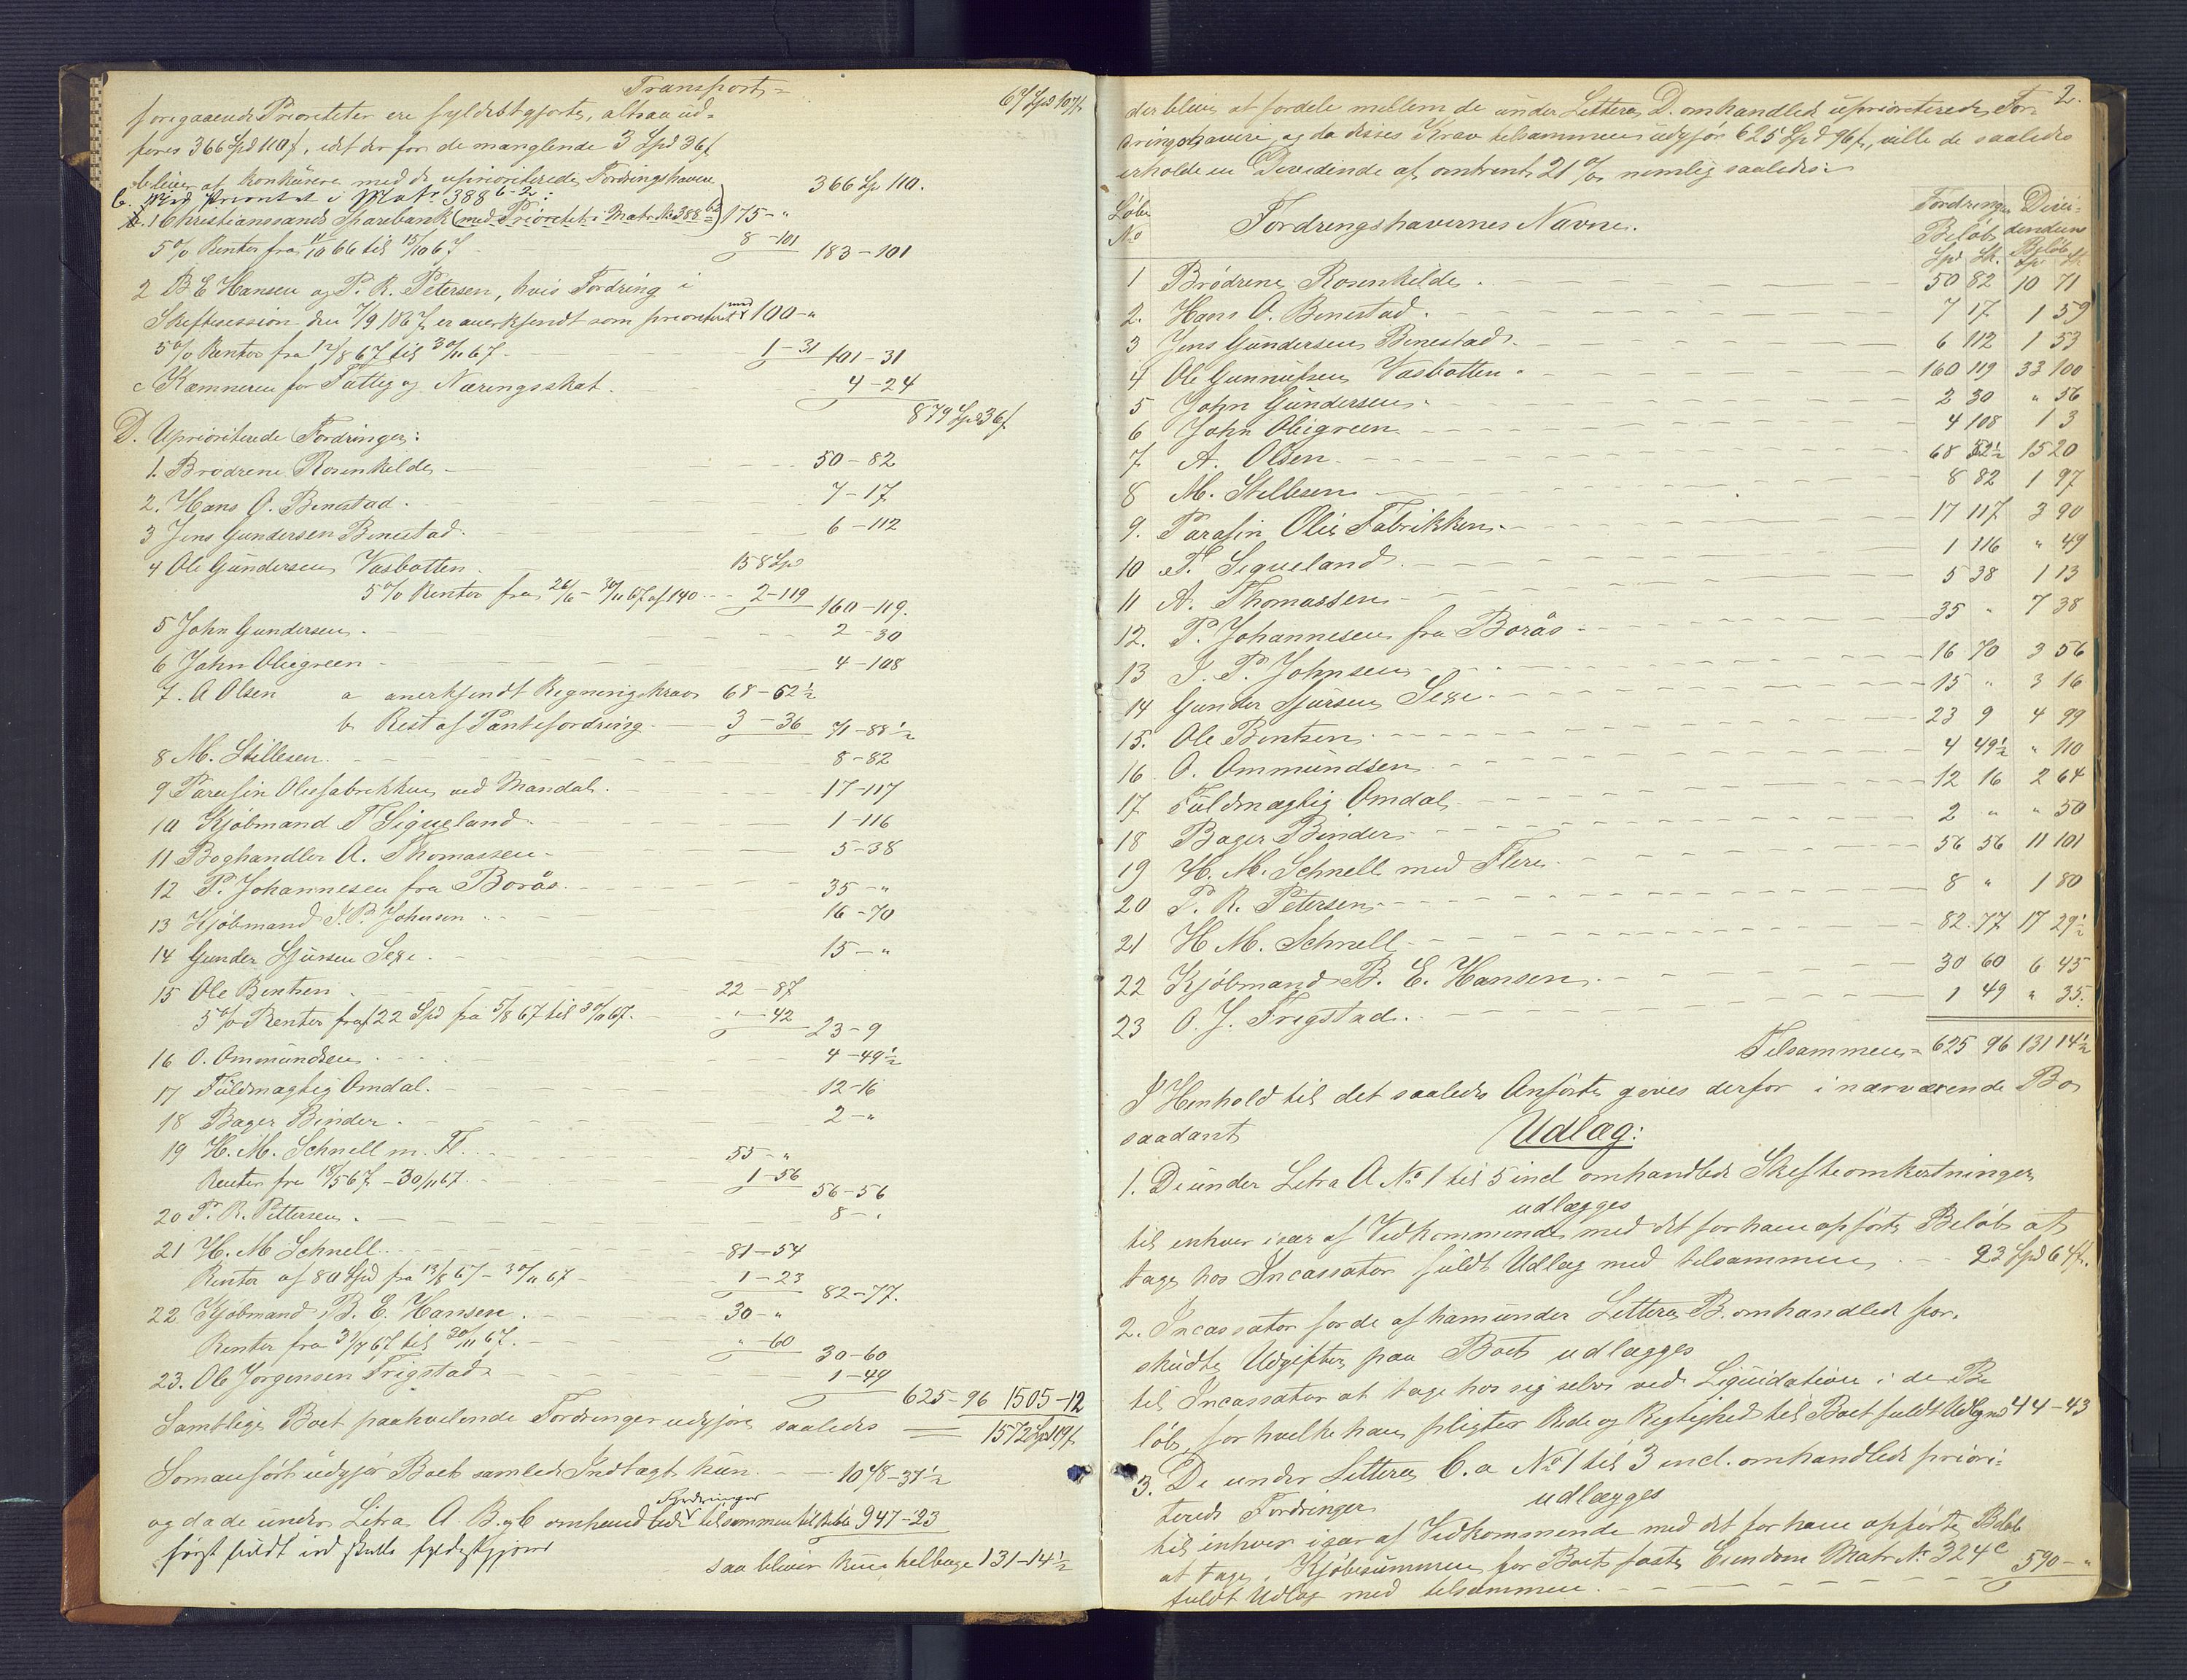 Transport =
foregaaende Prioriteter ere fyldestgjorte, altsaa ud=
føres 366 Spd 110 ß, idet der for de manglende 3 Spd 36 ß
bliver at konkurere med de uprioriterede Fordringshavere 366 Sp 110.
b. Med Prioritet i Matr 388 b-2:
1 Christianssands Sparebank (med Prioritet i Matr. No 388 b2) 175 - "
5 % Renter fra 11/10 66 til 15/10 67 8 - 101 183 - 101
2 B E Hansen og P. R. Petersen, hvis Fordring i
Skiftesession den 7/9 1867 er anerkjendt som prioriteret med 100 - "
5 % Renter fra 12/8 67 til 30/11 67. 1 - 31 101 - 31
c Kæmneren for Fattig og Næringsskat. 4 - 24
879 Spd 36 ß
D. Uprioriterede Fordringer:
1. Brødrene Rosenkilde 50 - 82
2. Hans O. Benestad. 7 - 17
3 Jens Gundersen Benestad. 6 - 112
4 Ole Gundersen Vasbotten. 158 Spd
5 % Renter fra 26/6 - 30/11 67 af 140 2 - 119 160 - 119.
5 John Gundersen. 2 - 30
6 John Oliegreen 4 - 108
7. A Olsen a anerkjendt Regningskrav 68 - 52 1/2
b. Rest af Pantefordring. 3 - 36 71 - 88 1/2
8 M. Stillesen. 8 - 82
9 Parafin Oliefabrikken ved Mandal. 17 - 117
10 Kjøbmand T Sigveland 1 - 116
11 Boghandler A. Thomassen 5 - 38
12 P. Johannesen fra Borås. 35 - "
13 Kjøbmand J. P. Johnsen 16 - 70
14 Gunder Sjursen Sexe. 15 - "
15 Ole Bentsen 22 - 87
5 % Renter fra 122 Spd fra 5/8 67 til 30/11 67. " - 42 23 - 9
16 O. Ommundsen 4 - 49 1/2
17 Fuldmægtig Omdal. 12 - 16
18 Bager Binder. 2 - "
19 H. M. Schnell m. Fl. 55 - "
Renter fra 18/5 67 - 30/11 67. 1 - 56 56 - 56
20 P. R. Pettersen. 8 - "
21 H. M Schnell 81 - 54
Renter af 80 Spd fra 13/8 67 - 30/11 67 1 - 23 82 - 77.
22 Kjøbmand B. E. Hansen. 30 - "
Renter fra 31/7 67 til 30/11 67. " - 60 30 - 60
23. Ole Jørgensen Frigstad 1 - 49
625 - 96 1505 - 12
Samtlige Boet paahvilende Fordringer udgjøre saaledes 1572 Spd 119 ß
Som anført udgjør Boets samlede Indtægt kun. 1078 - 37 1/2
og da de under Litra A. B. og C omhandlede Fordringer tilsammen til Beløb 947 - 23
først fuldt ud skulle fyldestgjøres
saa bliver kun tilbage 131 - 14 1/2
67 Spd 107 ß
2.
der bliver at fordele mellem de under Littera D. omhandlede uprioriterede For-
dringshavere, og da disses Krav tilsammen udgjør 625 Spd 96 ß, ville de saaledes
erholde en Dividende af omtrent 21 % nemlig saaledes:
Løbe No Fordringshavernes Navne. Fordringens Beløb Spd Sk. Dividendens Beløb Sp Sk
1 Brødrene Rosenkilde. 50 82 10 71
2. Hans O. Benestad. 7 17 1 59
3 Jens Gundersen Benestad. 6 112 1 53
4 Ole Gunnufsen Vasbotten. 160 119 33 100
5 John Gundersen. 2 30 " 56
6 John Oliegreen 4 108 1 3
7 A. Olsen. 68 52 1/2 15 20
8 M. Stillesen 8 82 1 97
9. Parafin Olie Fabrikken. 17 117 3 90
10 T. Sigveland. 1 116 " 49
11 A. Thomassen 5 38 1 13
12. P. Johannesen fra Borås 35 " 7 38
13 J. P. Johnsen 16 70 3 56
14 Gunder Sjursen Sexe. 15 " 3 16
15. Ole Bentsen 23 9 4 99
16 O. Ommundsen 4 49 1/2 " 110
17 Fuldmægtig Omdal 12 16 2 64
18 Bager Binder 2 " " 50
19 H. M. Schnell med Flere 56 56 11 101
20 P. R. Petersen. 8 " 1 80
21 H M. Schnell 82 77 17 29 1/2
22 Kjøbmand B. E. Hansen. 30 60 6 45
23 O. J. Frigstad. 1 49 " 35.
Tilsammen = 625 96 131 14 1/2
I Henhold til det saaledes Anførte gives derfor i nærværende Bo
saadant Udlæg:
1. De under Litra A No 1 til 5 incl omhandlede Skifteomkostninger
udlægges
til enhver især af Vedkommende med det for ham opførte Beløb at
tage hos Incassator fuldt Udlæg med tilsammen 23 Spd 64 ß.
2. Incassator for de af ham under Littera B. omhandlede for=
skudte Udgifter paa Boet udlægges
til Incassator at tage hos sig selv ved Liquidation i de Be
løb, for hvilke han pligter Rede og Rigtighed til Boet fuldt Udlæg med 44 - 43
3. De under Littera C. a No 1 til 3 incl. omhandlede priori=
terede Fordringer udlægges
til enhver især af Vedkommende med det for ham opførte Beløb
at tage i Kjøbesummen for Boets faste Eiendom Matr No 324 c
fuldt Udlæg med tilsammen. 590 - "